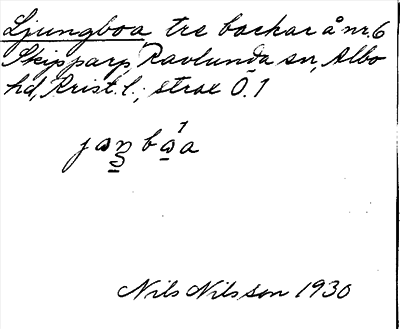 Ljungboa, tre backar å nr. 6
Skipparp, Ravlunda sn, Albo
hd, Krist. l.; strax Ö. 1
Nils Nilsson 1930